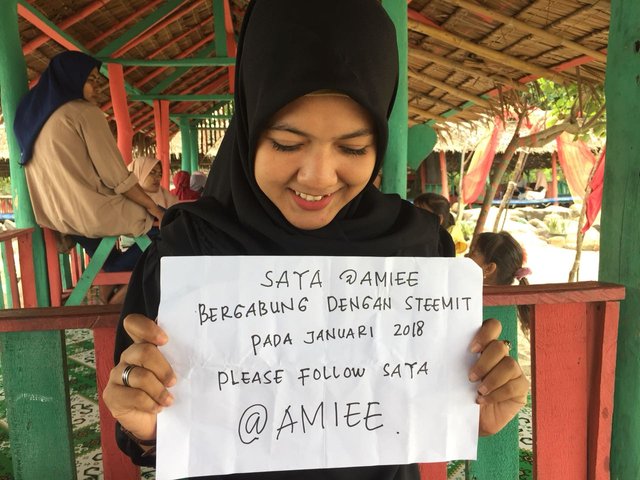 SAYA @AMIEE
BERGABUNG DENGAN STEEMIT
PADA JANUARI 2018
PLEASE FOLLOW SAYA
@AMIEE.